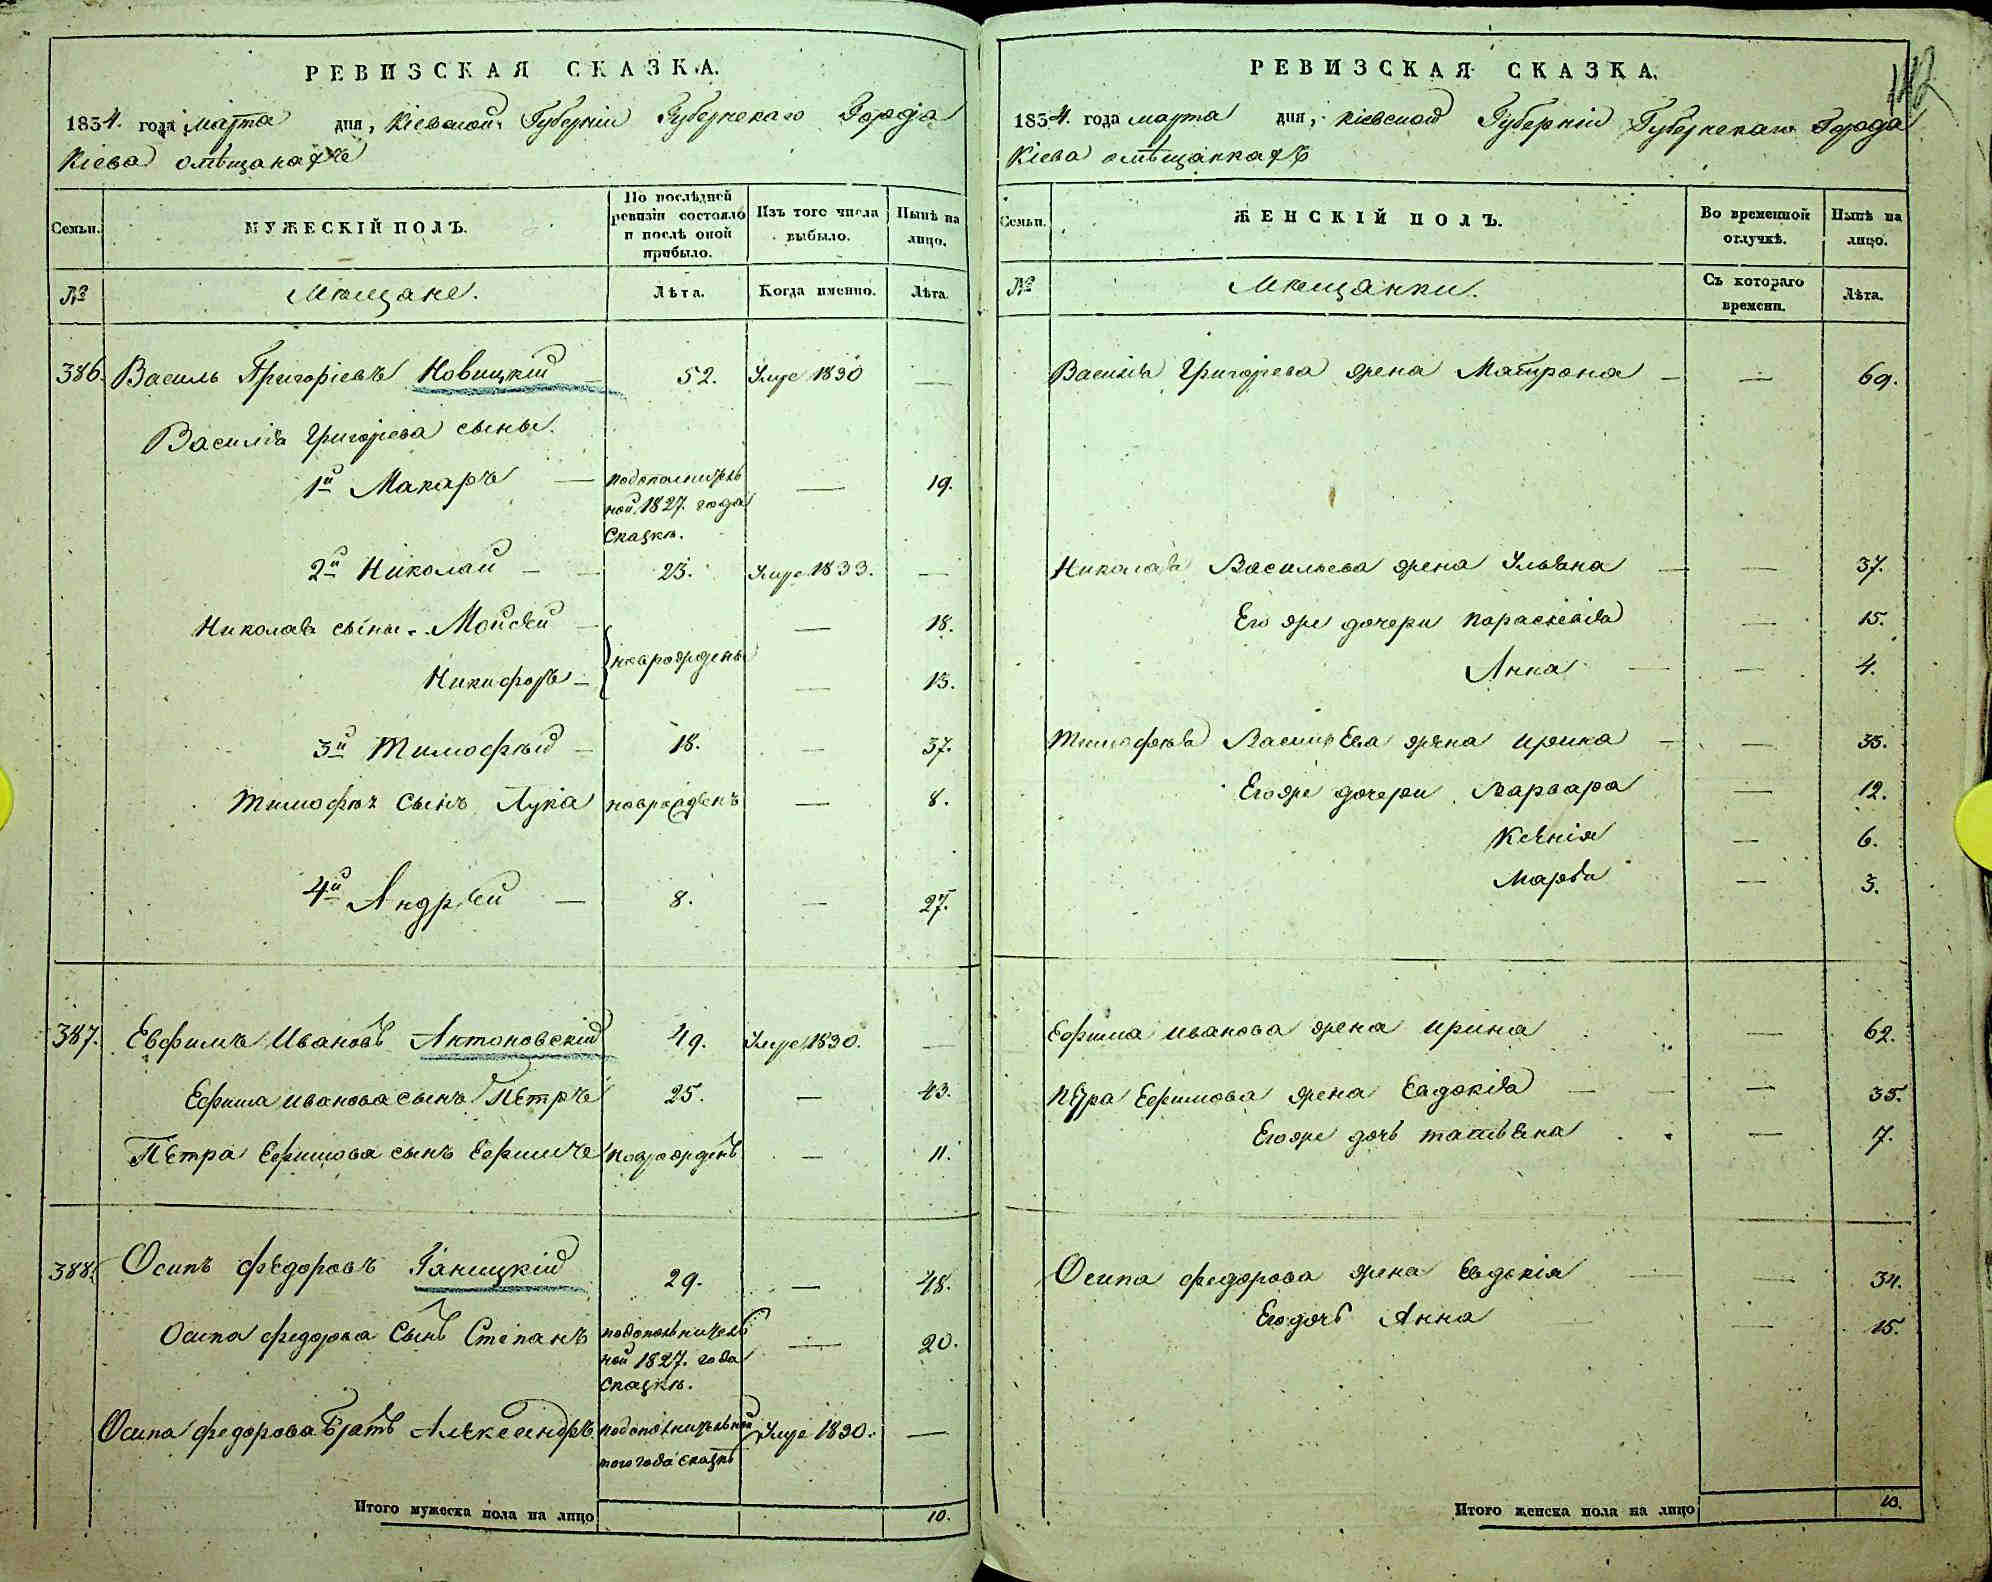 РЕВИЗСКАЯ СКАЗКА.
1834. года марта дня, Кіевской Губерніи Губернскаго Города
Кіева омѣщанахъ
Семьи. МУЖЕСКІЙ ПОЛЪ. По послѣдней ревизіи состояло и послѣ оной прибыло. Изъ того числа выбыло. Нынѣ на лицо.
№ Мѣщане. Лѣта. Когда именно. Лѣта.
386. Василь Григоріевъ Новицкій 52. Умре 1830 —
Василія Григорьева сыны.
1й Макаръ — подополнитель
ной 1827. года
Сказкѣ. — 19.
2й Николай — 23. Умре 1833. —
Николая сыны. Мойсей — 18.
новорождены
Никифоръ — 13.
3й Тимофѣй — 18. — 37.
Тимофѣя Сынъ Лука новорожденъ — 8.
4й Андрей — 8. — 27.
387. Евфимъ Ивановъ Антоновскій 49. Умре 1830. —
Ефима Иванова сынъ Петръ 25. — 43.
Петра Ефимова сынъ Ефимъ новрожденъ — 11.
388. Осипъ Федоровъ Ганицкій 29. — 48.
Осипа Федорова Сынъ Степанъ подополнитель
ной 1827. года
Сказкѣ. — 20.
Осипа Федорова Братъ Александръ подополнительной
того года Сказкѣ Умре 1830. —
Итого мужеска пола на лицо 10.
142
РЕВИЗСКАЯ СКАЗКА.
1834. года марта дня, Кіевской Губерніи Губернскаго Города
Кіева омѣщанкахъ
Семьи. ЖЕНСКІЙ ПОЛЪ. Во временной отлучкѣ. Нынѣ на лицо.
№ Мѣщанки. Съ котораго времени. Лѣта.
Василія Григорьева жена Матрона — — 69.
Николая Васильева жена Ульяна — — 37.
Его же дочери Параскевія — 15.
Анна — — 4.
Тимофѣя Васильева жена Ирина — — 33.
Его же дочери Варвара — 12.
Ксенія — 6.
Марфа — 3.
Ефима Иванова жена Ирина — 62.
Петра Ефимова жена Евдокія — — 35.
Его же дочь Татьяна — 7.
Осипа Федорова жена Евдокія — — 34.
Его дочь Анна — — 15.
Итого женска пола на лицо 10.